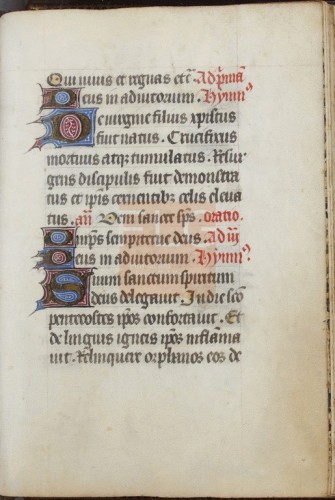 Qui vivis et regnas etc̄. Ad p̄mā
Deus in adiutorum. hymn᷒
De virgine filius xpistus
fuit natus. Crucifixus
mortuus atq; tumulatus. Resur
gens discipulis fuit demonstra
tus et ipis cernentibz celis eleva
tus. an̄ Veni sancte sps̄. oratio.
Omp̄s sempiterne deus. Ad iij
Deus in adiutorum. hymn᷒
Suum sanctum spiritum
deus delegavit. In die scō
pentecostes ip̄os confortavit. Et
de linguis igneis ip̄os inflama
vit. Relinquere orphanos eos de